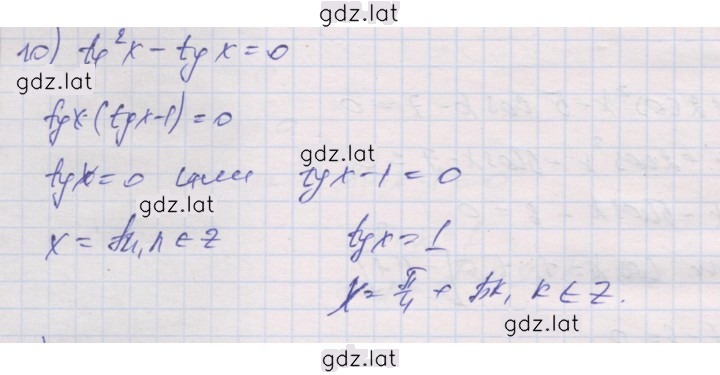 gdz.lat
10) tg²x - tgx = 0
gdz.lat
tgx·(tgx-1) = 0
gdz.lat
tgx = 0 или tgx-1 = 0
gdz.lat
x = πn, n ∈ Z tgx = 1
x = π/4 + πk, k ∈ Z.
gdz.lat
gdz.lat